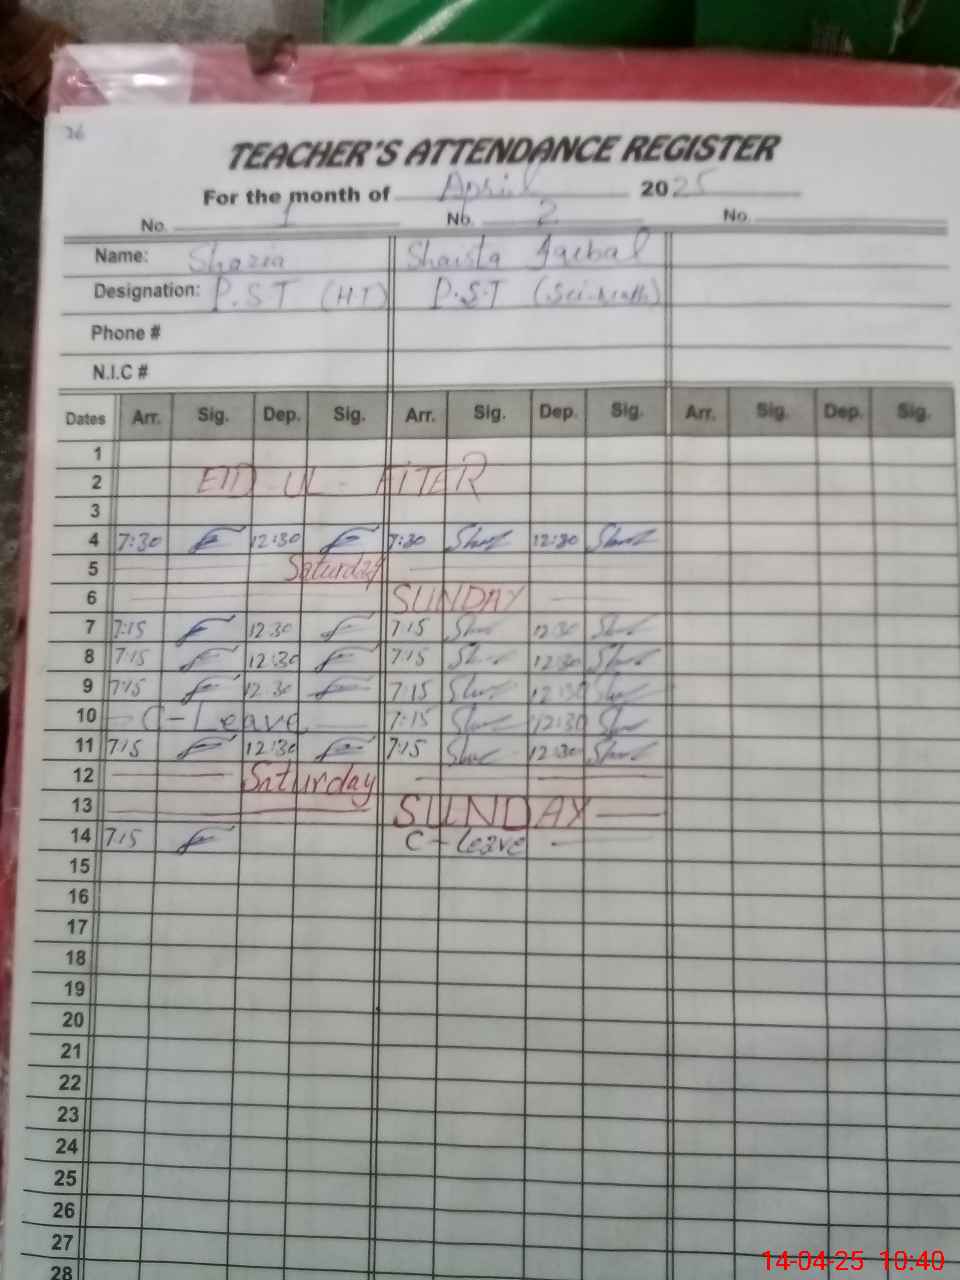 26
TEACHER'S ATTENDANCE REGISTER
For the month of April 2025
No. 1 No. 2 No.
Name: Shazia Shaista Iqbal
Designation: P.S.T (H.T) P.S.T (Sci-Math)
Phone #
N.I.C #
Dates Arr. Sig. Dep. Sig. Arr. Sig. Dep. Sig. Arr. Sig. Dep. Sig.
1
2 EID - UL - FITER
3
4 7:30 12:30 7:30 12:30
5 Saturday
6 SUNDAY
7 7:15 12:30 7:15 12:30
8 7:15 12:30 7:15 12:30
9 7:15 12:30 7:15 12:30
10 C-Leave 7:15 12:30
11 7:15 12:30 7:15 12:30
12 Saturday
13 SUNDAY
14 7:15 C-Leave
15
16
17
18
19
20
21
22
23
24
25
26
27
28
14-04-25 10:40